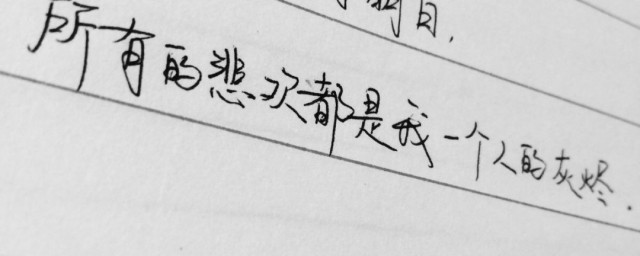 明日.
所有的悲欢都是我一个人的灰烬.